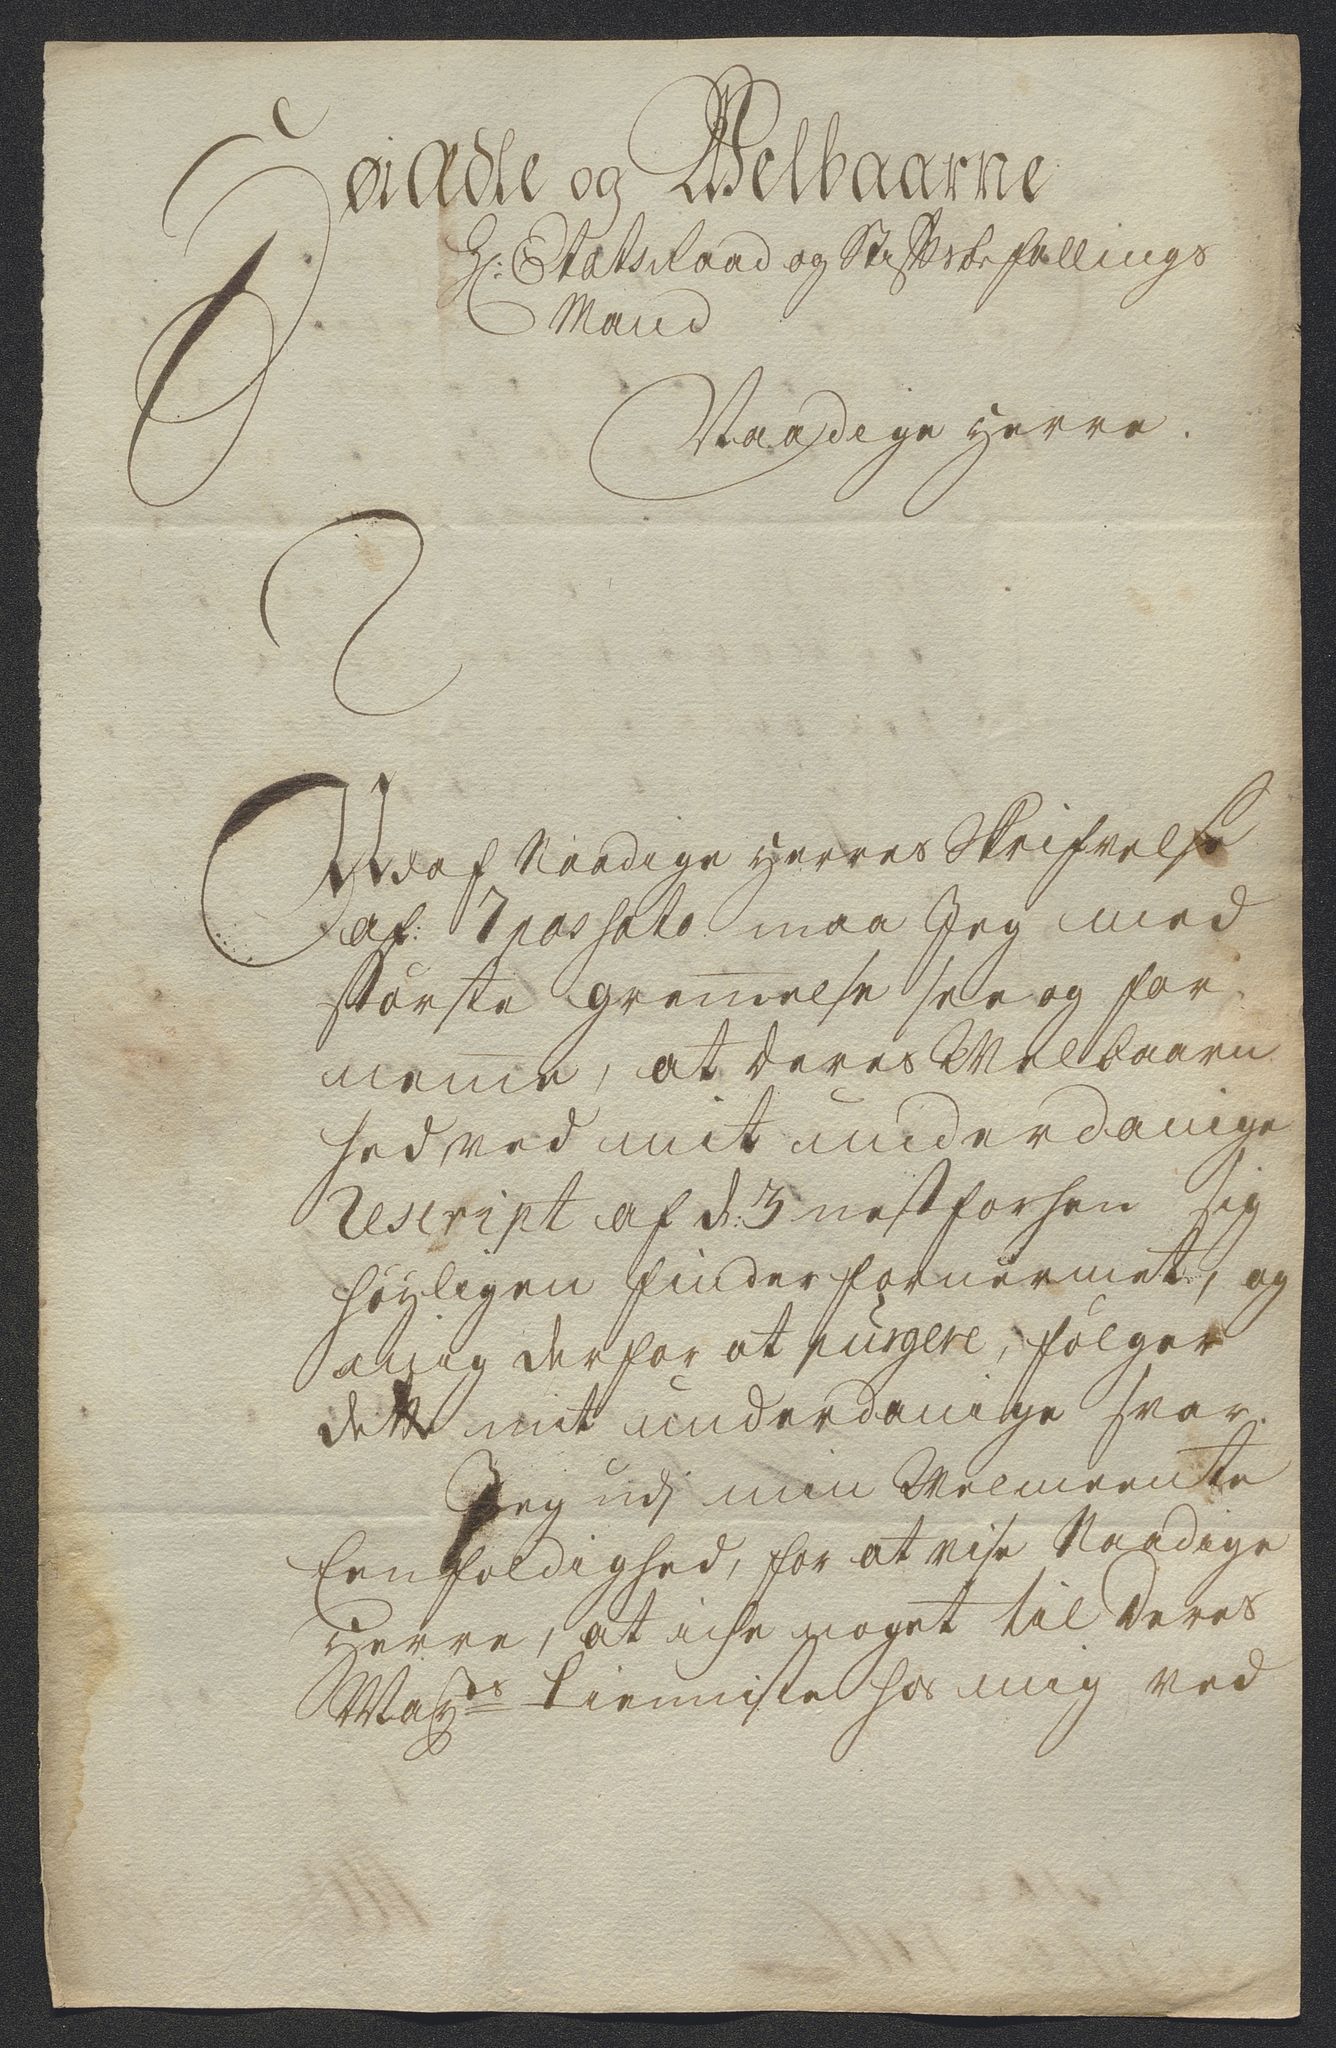 HøiÆdle og Welbaarne
Hr: EtatsRaad og Stiftsbefallings
Mand
Naadige Herre.
Udaf Naadige Herres Skrifvelse
af: 7 passato maa Jeg med
største gremmelse see og for
nemme, at Deres Welbaarn
hed, ved mit underdanige
rescript af d: 3 nestforhen sig
høyligen finder fornermet, og
mig derfor at purgere, følger
dette mit underdanige svar.
Jeg udj min Welmeente
Eenfoldighed, for at vise Naadige
Herre, at iche noget til Deres
Mayts Tienniste hos mig ved